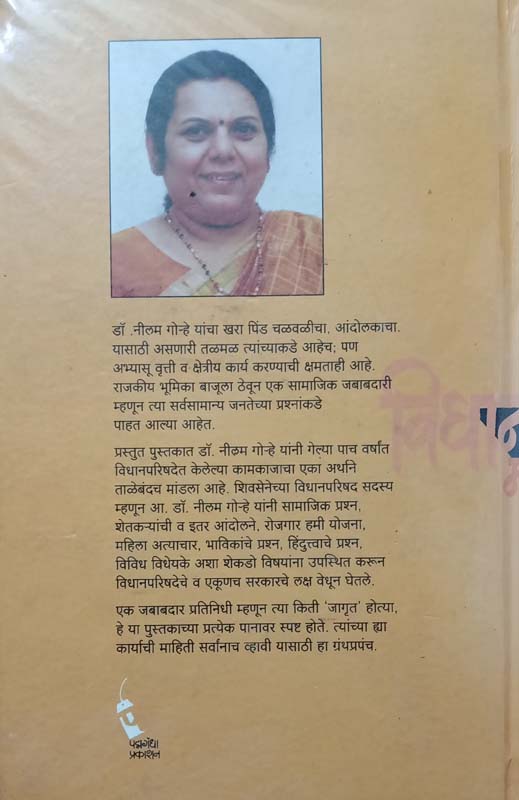 डॉ .नीलम गोऱ्हे यांचा खरा पिंड चळवळीचा, आंदोलकाचा.
यासाठी असणारी तळमळ त्यांच्याकडे आहेच; पण
अभ्यासू वृत्ती व क्षेत्रीय कार्य करण्याची क्षमताही आहे.
राजकीय भूमिका बाजूला ठेवून एक सामाजिक जबाबदारी
म्हणून त्या सर्वसामान्य जनतेच्या प्रश्नांकडे
पाहत आल्या आहेत.
प्रस्तुत पुस्तकात डॉ. नीलम गोऱ्हे यांनी गेल्या पाच वर्षांत
विधानपरिषदेत केलेल्या कामकाजाचा एका अर्थाने
ताळेबंदच मांडला आहे. शिवसेनेच्या विधानपरिषद सदस्य
म्हणून आ. डॉ. नीलम गोऱ्हे यांनी सामाजिक प्रश्न,
शेतकऱ्यांची व इतर आंदोलने, रोजगार हमी योजना,
महिला अत्याचार, भाविकांचे प्रश्न, हिंदुत्त्वाचे प्रश्न,
विविध विधेयके अशा शेकडो विषयांना उपस्थित करून
विधानपरिषदेचे व एकूणच सरकारचे लक्ष वेधून घेतले.
एक जबाबदार प्रतिनिधी म्हणून त्या किती 'जागृत' होत्या,
हे या पुस्तकाच्या प्रत्येक पानावर स्पष्ट होते. त्यांच्या ह्या
कार्याची माहिती सर्वांनाच व्हावी यासाठी हा ग्रंथप्रपंच.
विधा
पद्मगंधा
प्रकाशन